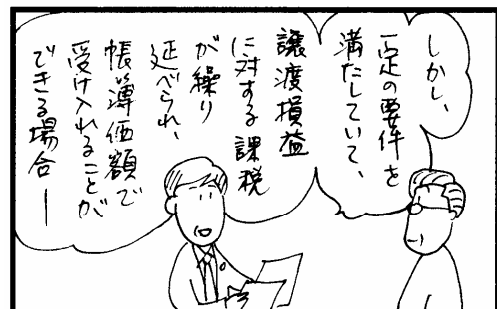 しかし、
一定の要件を
満たしていて、
譲渡損益
に対する課税
が繰り
延べられ、
帳簿価額で
受け入れることが
できる場合―